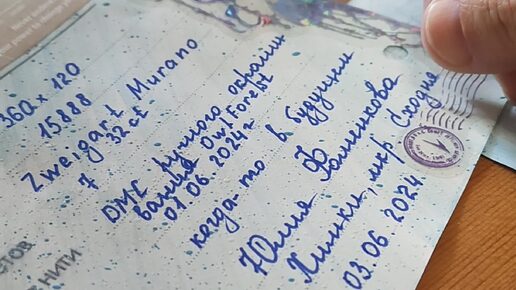 360 x 120
15888
Zweigart Murano
7 32ct
DMC ручного окрашивания OwlForest
01.06.2024г
когда-то в будущем
Юлия
Химки, мкр Сходня
03.06.2024
НИТИ